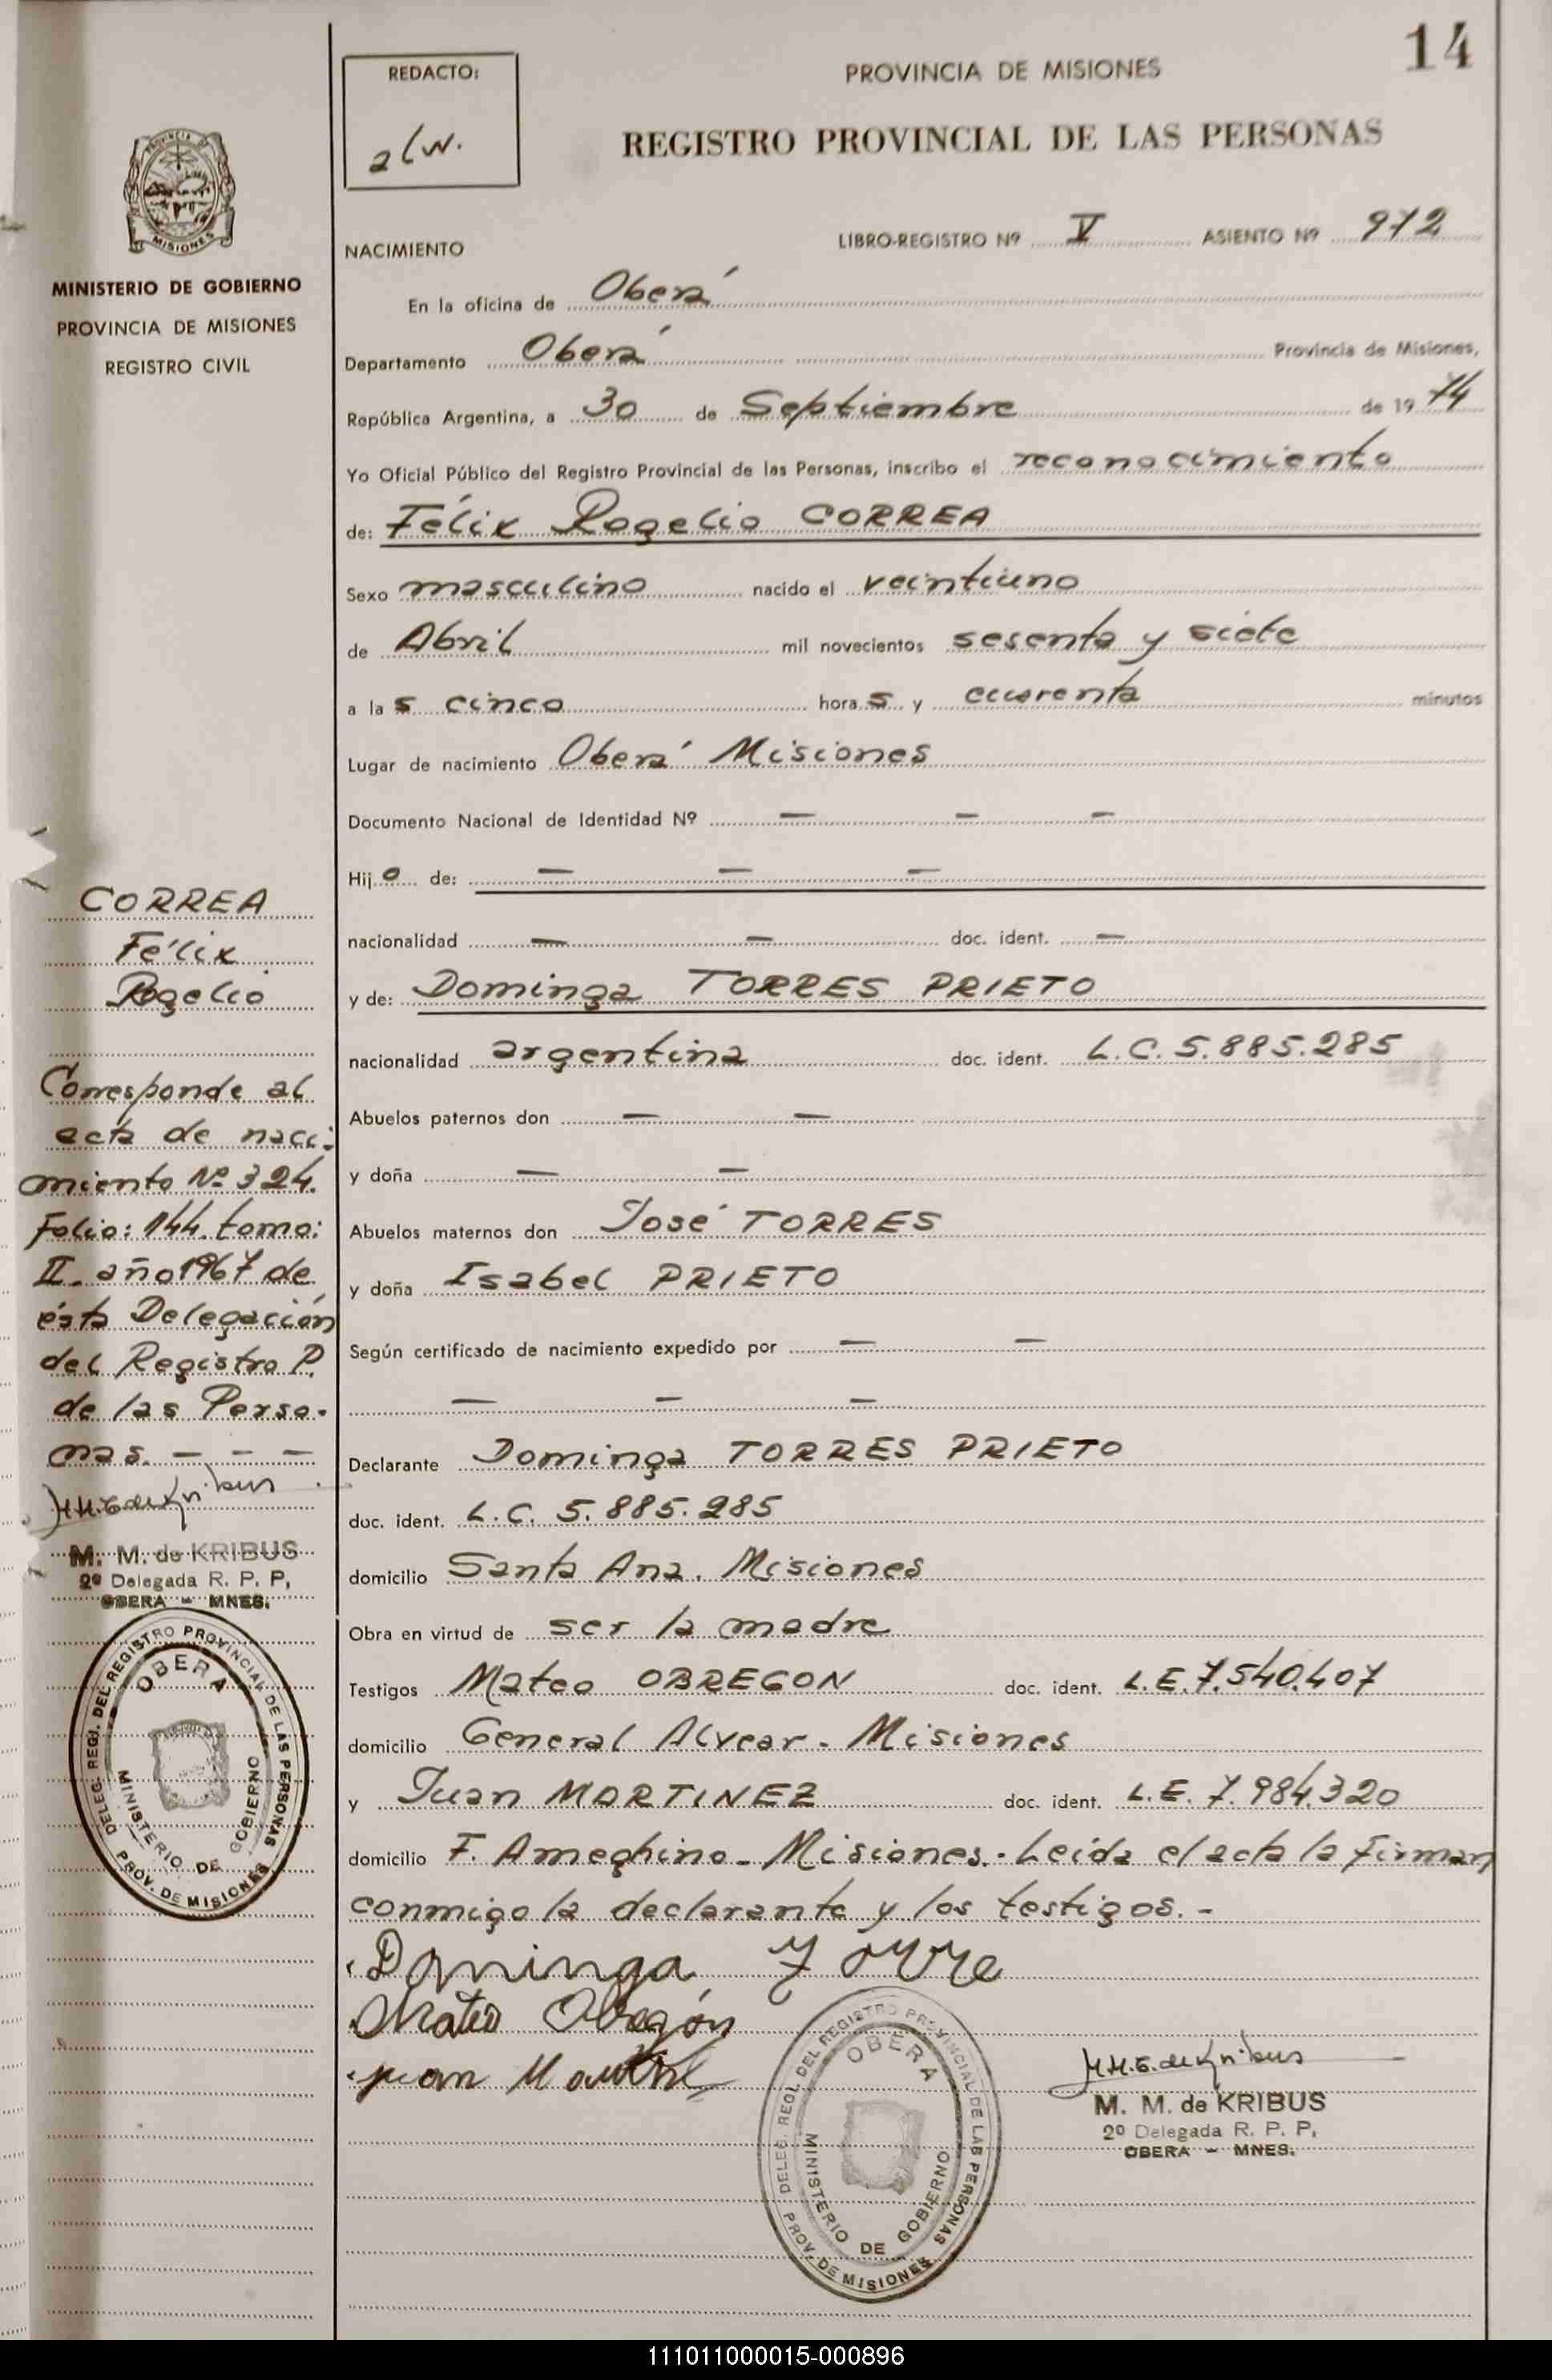 14
REDACTO:
alw.
PROVINCIA DE MISIONES
REGISTRO PROVINCIAL DE LAS PERSONAS
LIBRO-REGISTRO Nº V ASIENTO Nº 972
NACIMIENTO
En la oficina de Oberá
Departamento Oberá Provincia de Misiones,
República Argentina, a 30 de Septiembre de 1974
Yo Oficial Público del Registro Provincial de las Personas, inscribo el reconocimiento
de: Félix Rogelio CORREA
Sexo masculino nacido el veintiuno
de Abril mil novecientos sesenta y siete
a las cinco horas y cuarenta minutos
Lugar de nacimiento Oberá Misiones
Documento Nacional de Identidad Nº — — —
Hijo de: — — —
nacionalidad — — doc. ident. —
y de: Dominga TORRES PRIETO
nacionalidad argentina doc. ident. L.C. 5.885.285
Abuelos paternos don — —
y doña — —
Abuelos maternos don José TORRES
y doña Isabel PRIETO
Según certificado de nacimiento expedido por — —
— — —
Declarante Dominga TORRES PRIETO
doc. ident. L.C. 5.885.285
domicilio Santa Ana. Misiones
Obra en virtud de ser la madre
Testigos Mateo OBREGON doc. ident. L.E. 7.540.407
domicilio General Alvear - Misiones
y Juan MARTINEZ doc. ident. L.E. 7.984.320
domicilio F. Ameghino - Misiones.- Leída el acta la firman
conmigo la declarante y los testigos. -
Dominga Torre
Mateo Obregón
Juan
M. M. de KRIBUS
2º Delegada R. P. P.
OBERA - MNES.
DELEG. REGI. DEL REGISTRO PROVINCIAL DE LAS PERSONAS
OBERA
MINISTERIO DE GOBIERNO
PROV. DE MISIONES
PROVINCIA DE
MISIONES
MINISTERIO DE GOBIERNO
PROVINCIA DE MISIONES
REGISTRO CIVIL
CORREA
Félix
Rogelio
Corresponde al
acta de naci-
miento Nº 324.
Folio: 144. tomo:
II. año 1967 de
ésta Delegación
del Registro P.
de las Perso-
nas. — — —
M. M. de KRIBUS
2º Delegada R. P. P.
OBERA - MNES.
DELEG. REGI. DEL REGISTRO PROVINCIAL DE LAS PERSONAS
OBERA
MINISTERIO DE GOBIERNO
PROV. DE MISIONES
111011000015-000896